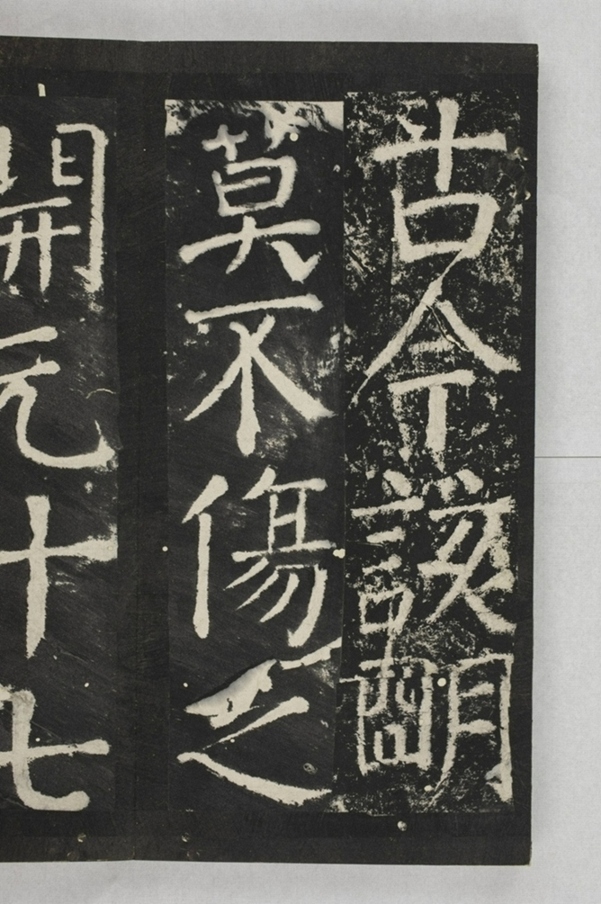 古今該明
莫不傷之
開元十七